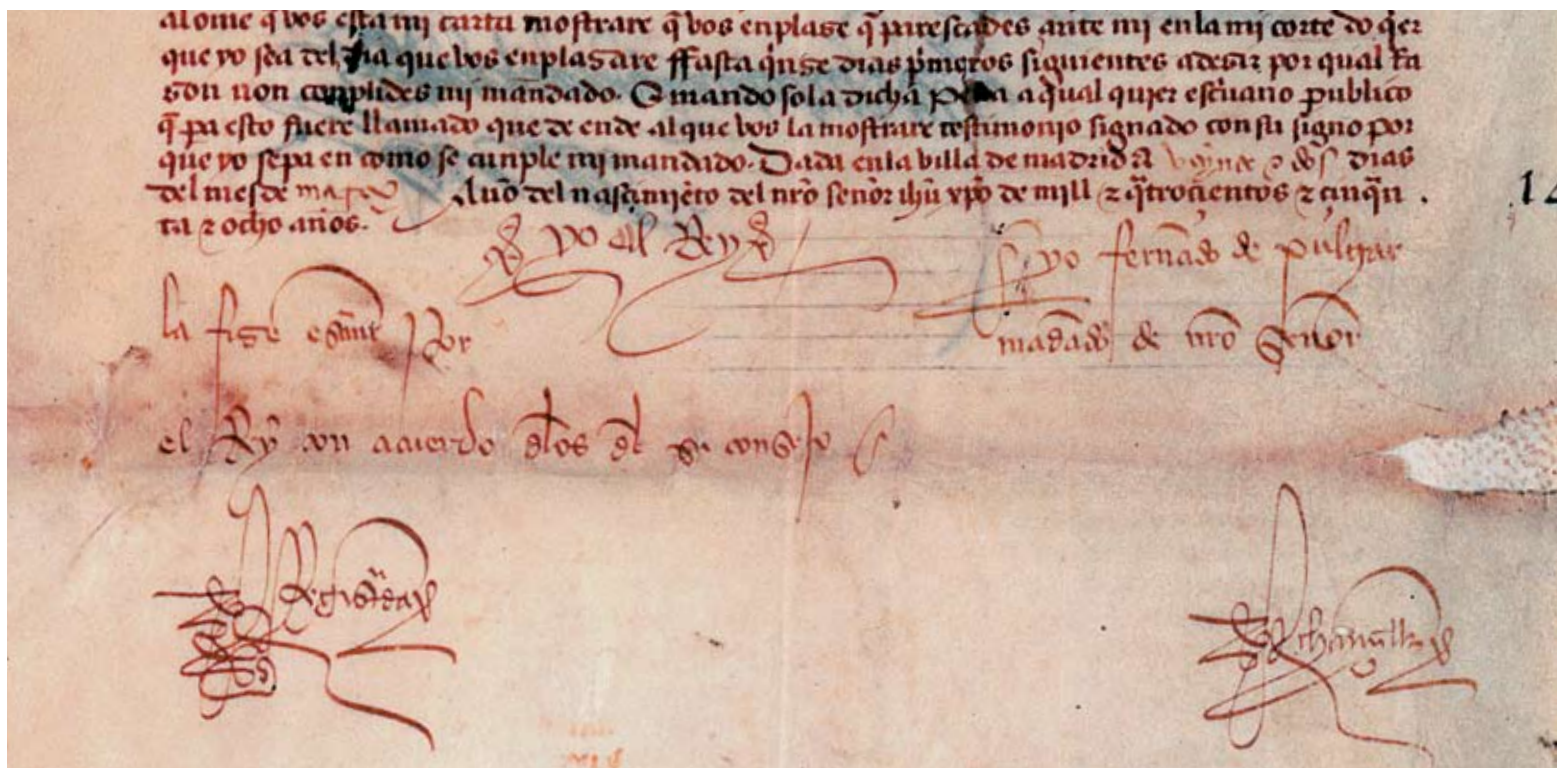 al ome q̃ vos esta mi carta mostrare q̃ vos enplase q̃ parescades ante mi en la mi corte do q̃er
que yo sea del dia que vos enplasare ffasta q̃nse dias p̃meros siguientes a desir por qual rra
son non conplides mi mandado. E mando so la dicha pena a qual quier esc̃uano publico
q̃ pa esto fuere llamado que de ende al que vos la mostrare testimonio signado con su signo por
que yo sepa en como se cunple mi mandado. Dada en la billa de madrid a veynte ⁊ dos dias
del mes de março Año del nasçimiẽto del nr̃o señor ihũ xp̃o de mill ⁊ q̃trocientos ⁊ cinq̃n
ta ⁊ ocho años.
yo el Rey
yo fernãdo de pulgar
la fise escriuir por
mãdado de nr̃o señor
el Rey con acuerdo dlos dl su consejo
Registrada
chanceller